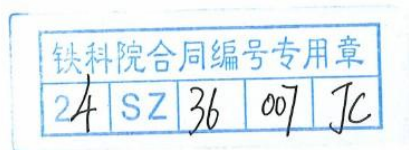 铁科院合同编号专用章
24 SZ 36 007 JC